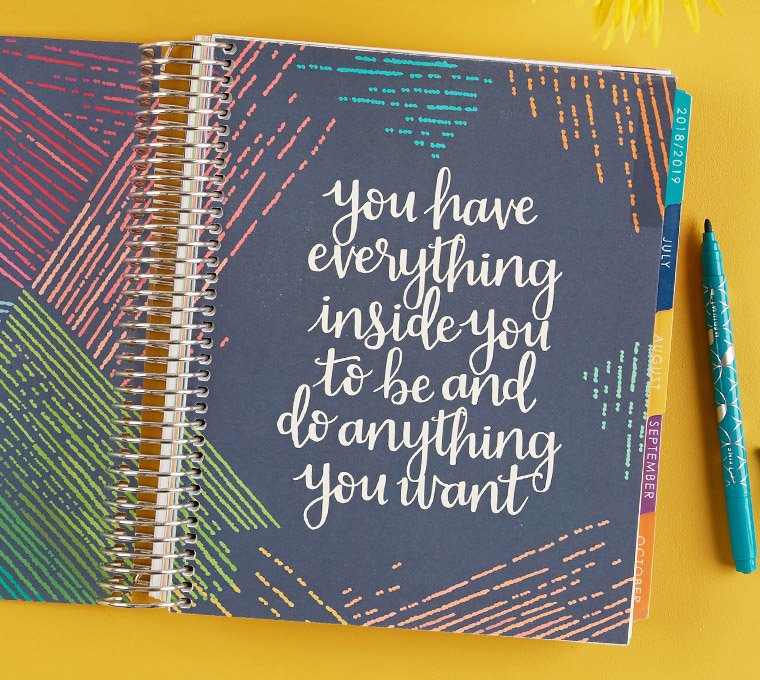 you have
everything
inside you
to be and
do anything
you want
2018/2019
JULY
AUGUST
SEPTEMBER
OCTOBER